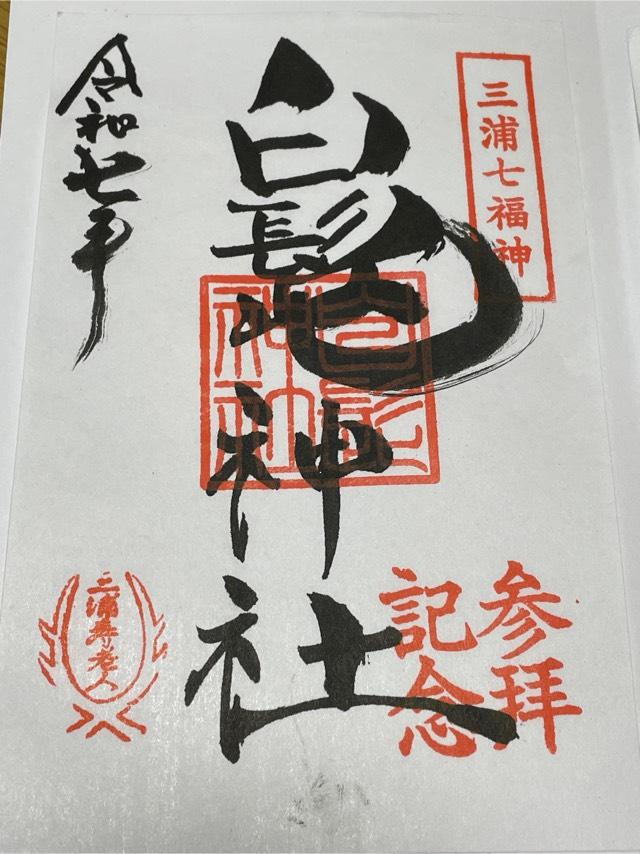 三浦七福神
参拝
記念
白髭神社
白髭神社
令和七年
三浦寿老人